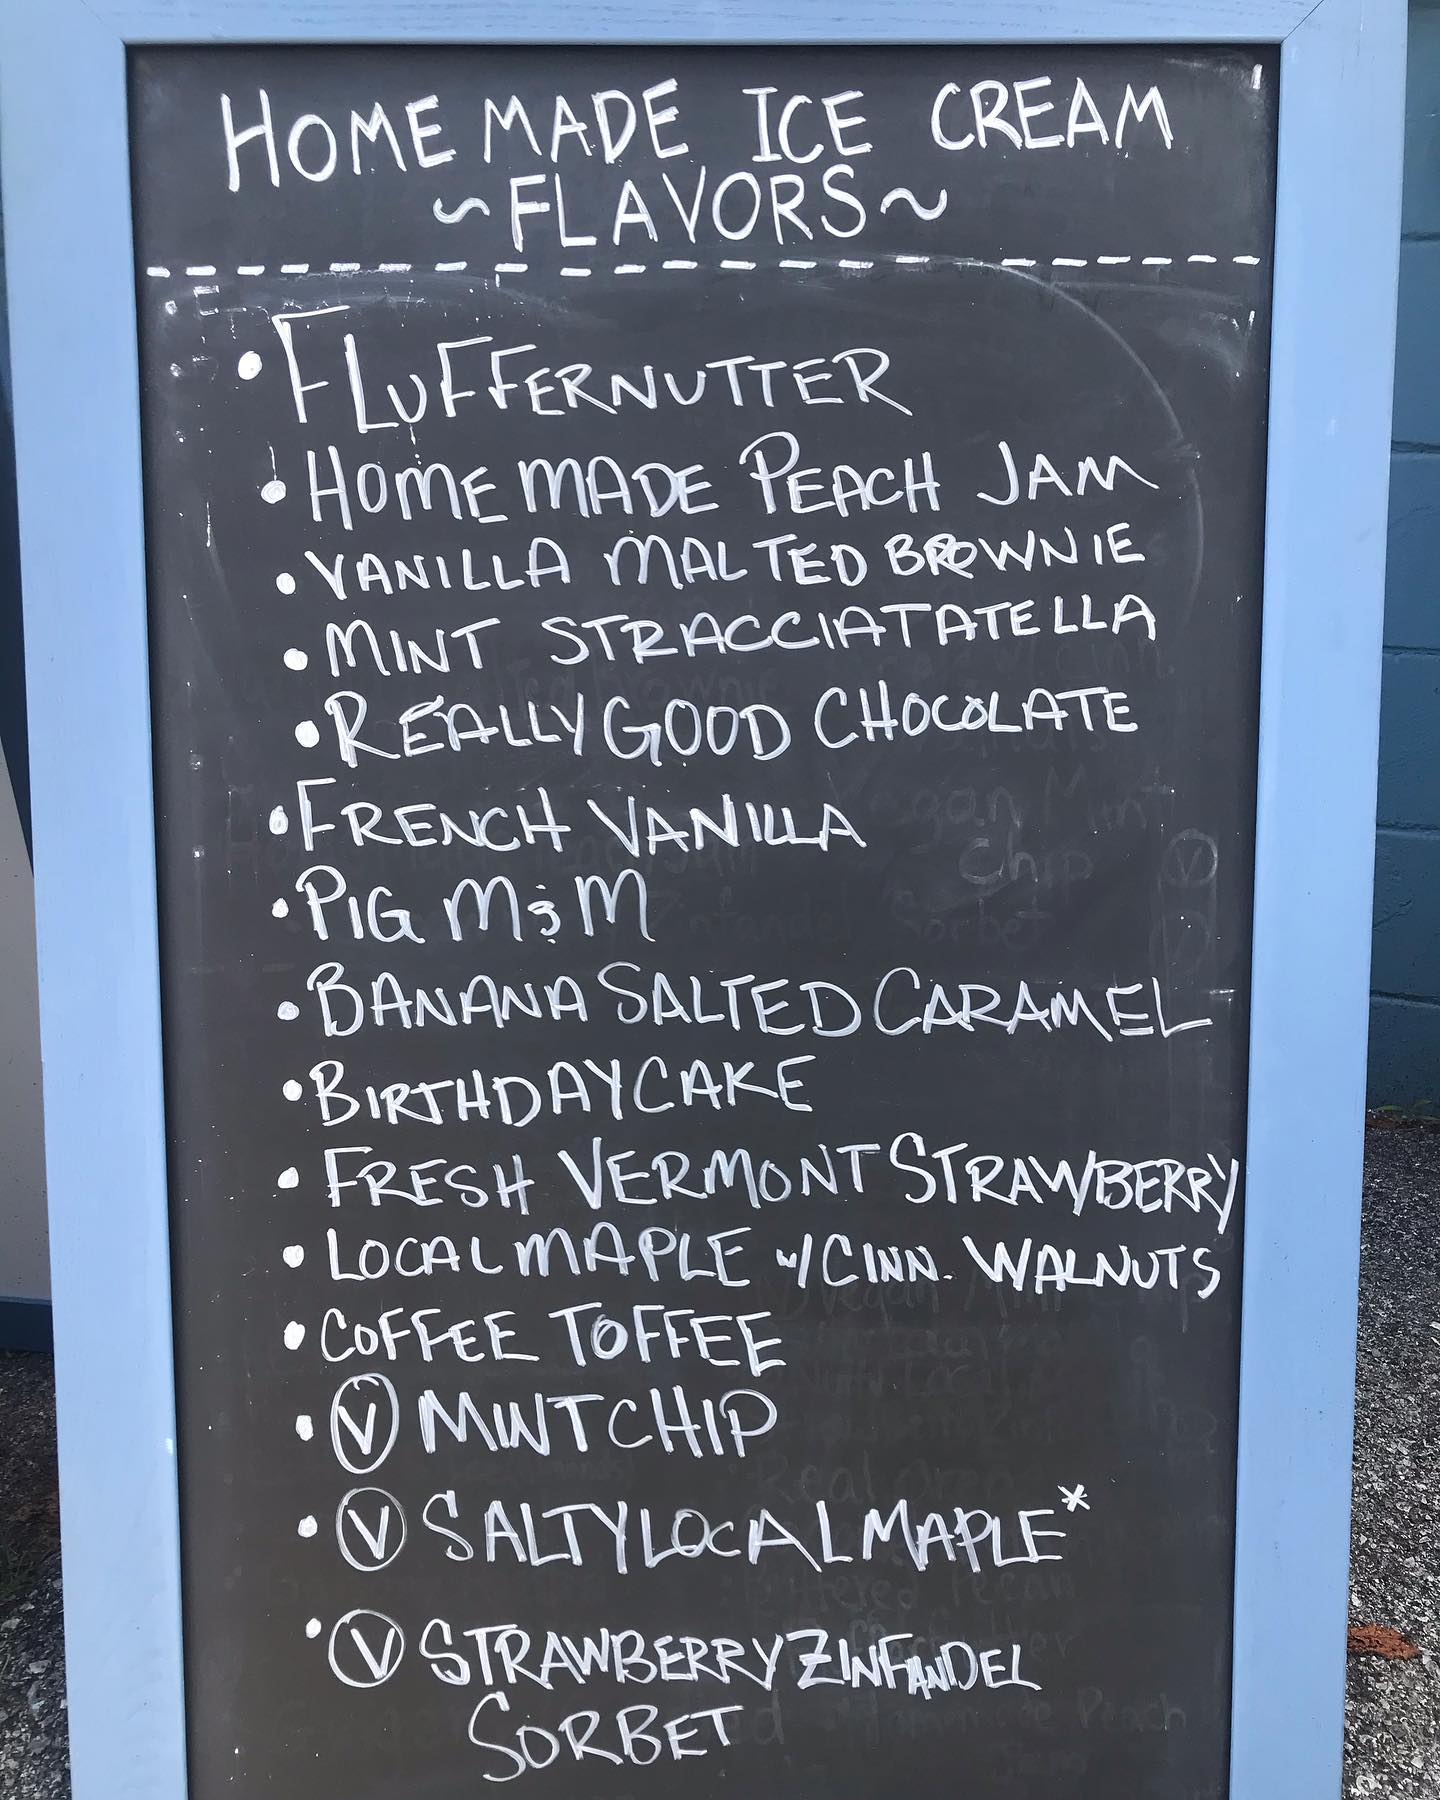 HOMEMADE ICE CREAM
~FLAVORS~
• FLUFFERNUTTER
• HOMEMADE PEACH JAM
• VANILLA MALTED BROWNIE
• MINT STRACCIATATELLA
• REALLY GOOD CHOCOLATE
• FRENCH VANILLA
• PIG M&M
• BANANA SALTED CARAMEL
• BIRTHDAY CAKE
• FRESH VERMONT STRAWBERRY
• LOCAL MAPLE w/ CINN. WALNUTS
• COFFEE TOFFEE
• Ⓥ MINT CHIP
• Ⓥ SALTY LOCAL MAPLE*
• Ⓥ STRAWBERRY ZINFANDEL
SORBET